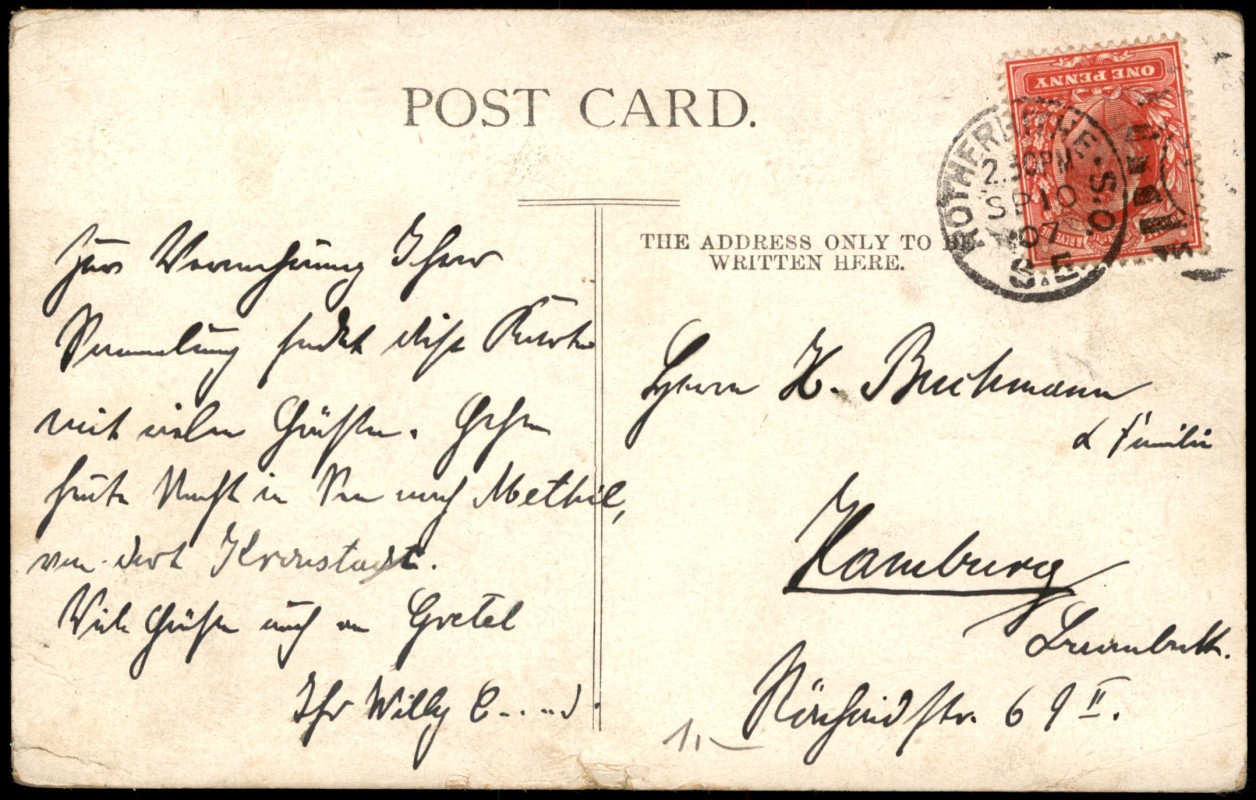 POST CARD.
ONE PENNY
ROTHERHITHE. S.O.
2.30PM
SP 10
07
S.E.
THE ADDRESS ONLY TO BE
WRITTEN HERE.
Zur Vermehrung Ihrer
Sammlung sendet diese Karte
mit vielen Grüßen. Gehen
heute Nacht in See nach Methil,
von dort Kronstadt.
Viele Grüße auch an Gretel
Ihr Willy
Herrn H. Buchmann
& Familie
Hamburg
Barmbeck.
69 II.
1,–